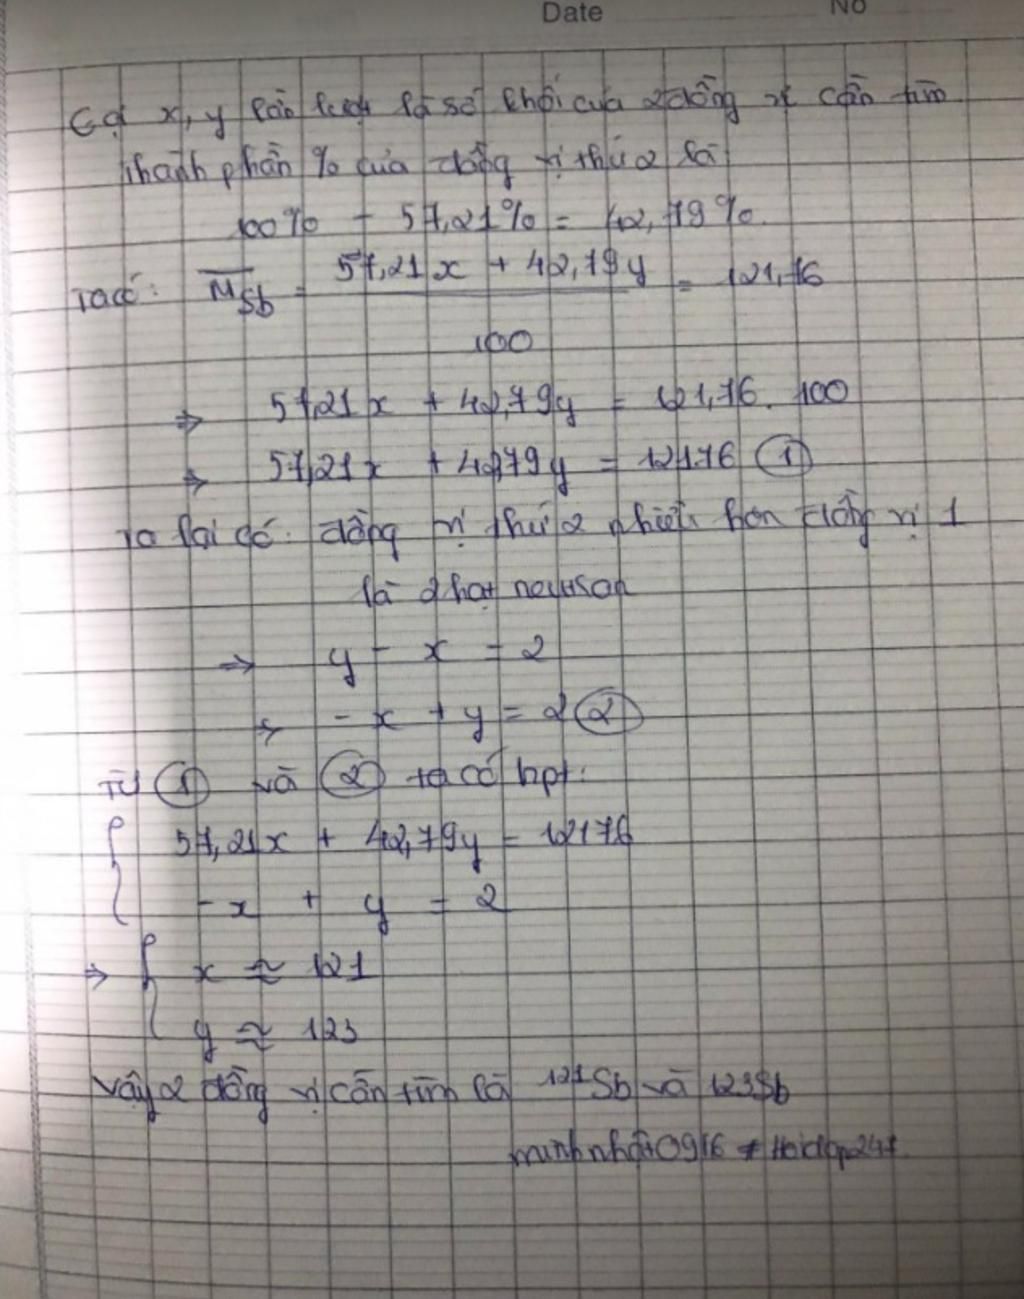 Date No
Gọi x, y lần lượt là số khối của 2 đồng vị cần tìm
Thành phần % của đồng vị thứ 2 là
100% - 57,21% = 42,79%
Ta có: M̅Sb = (57,21x + 42,79y) / 100 = 121,76
⇒ 57,21x + 42,79y = 121,76 . 100
⇒ 57,21x + 42,79y = 12176 ①
Ta lại có: đồng vị thứ 2 nhiều hơn đồng vị 1
là 2 hạt nơtron
⇒ y - x = 2
⇒ - x + y = 2 ②
Từ ① và ② ta có hpt:
{ 57,21x + 42,79y = 12176
- x + y = 2
⇒ { x ≈ 121
y ≈ 123
Vậy 2 đồng vị cần tìm là ¹²¹Sb và 123Sb
minhnhật0916 # Hoidap247